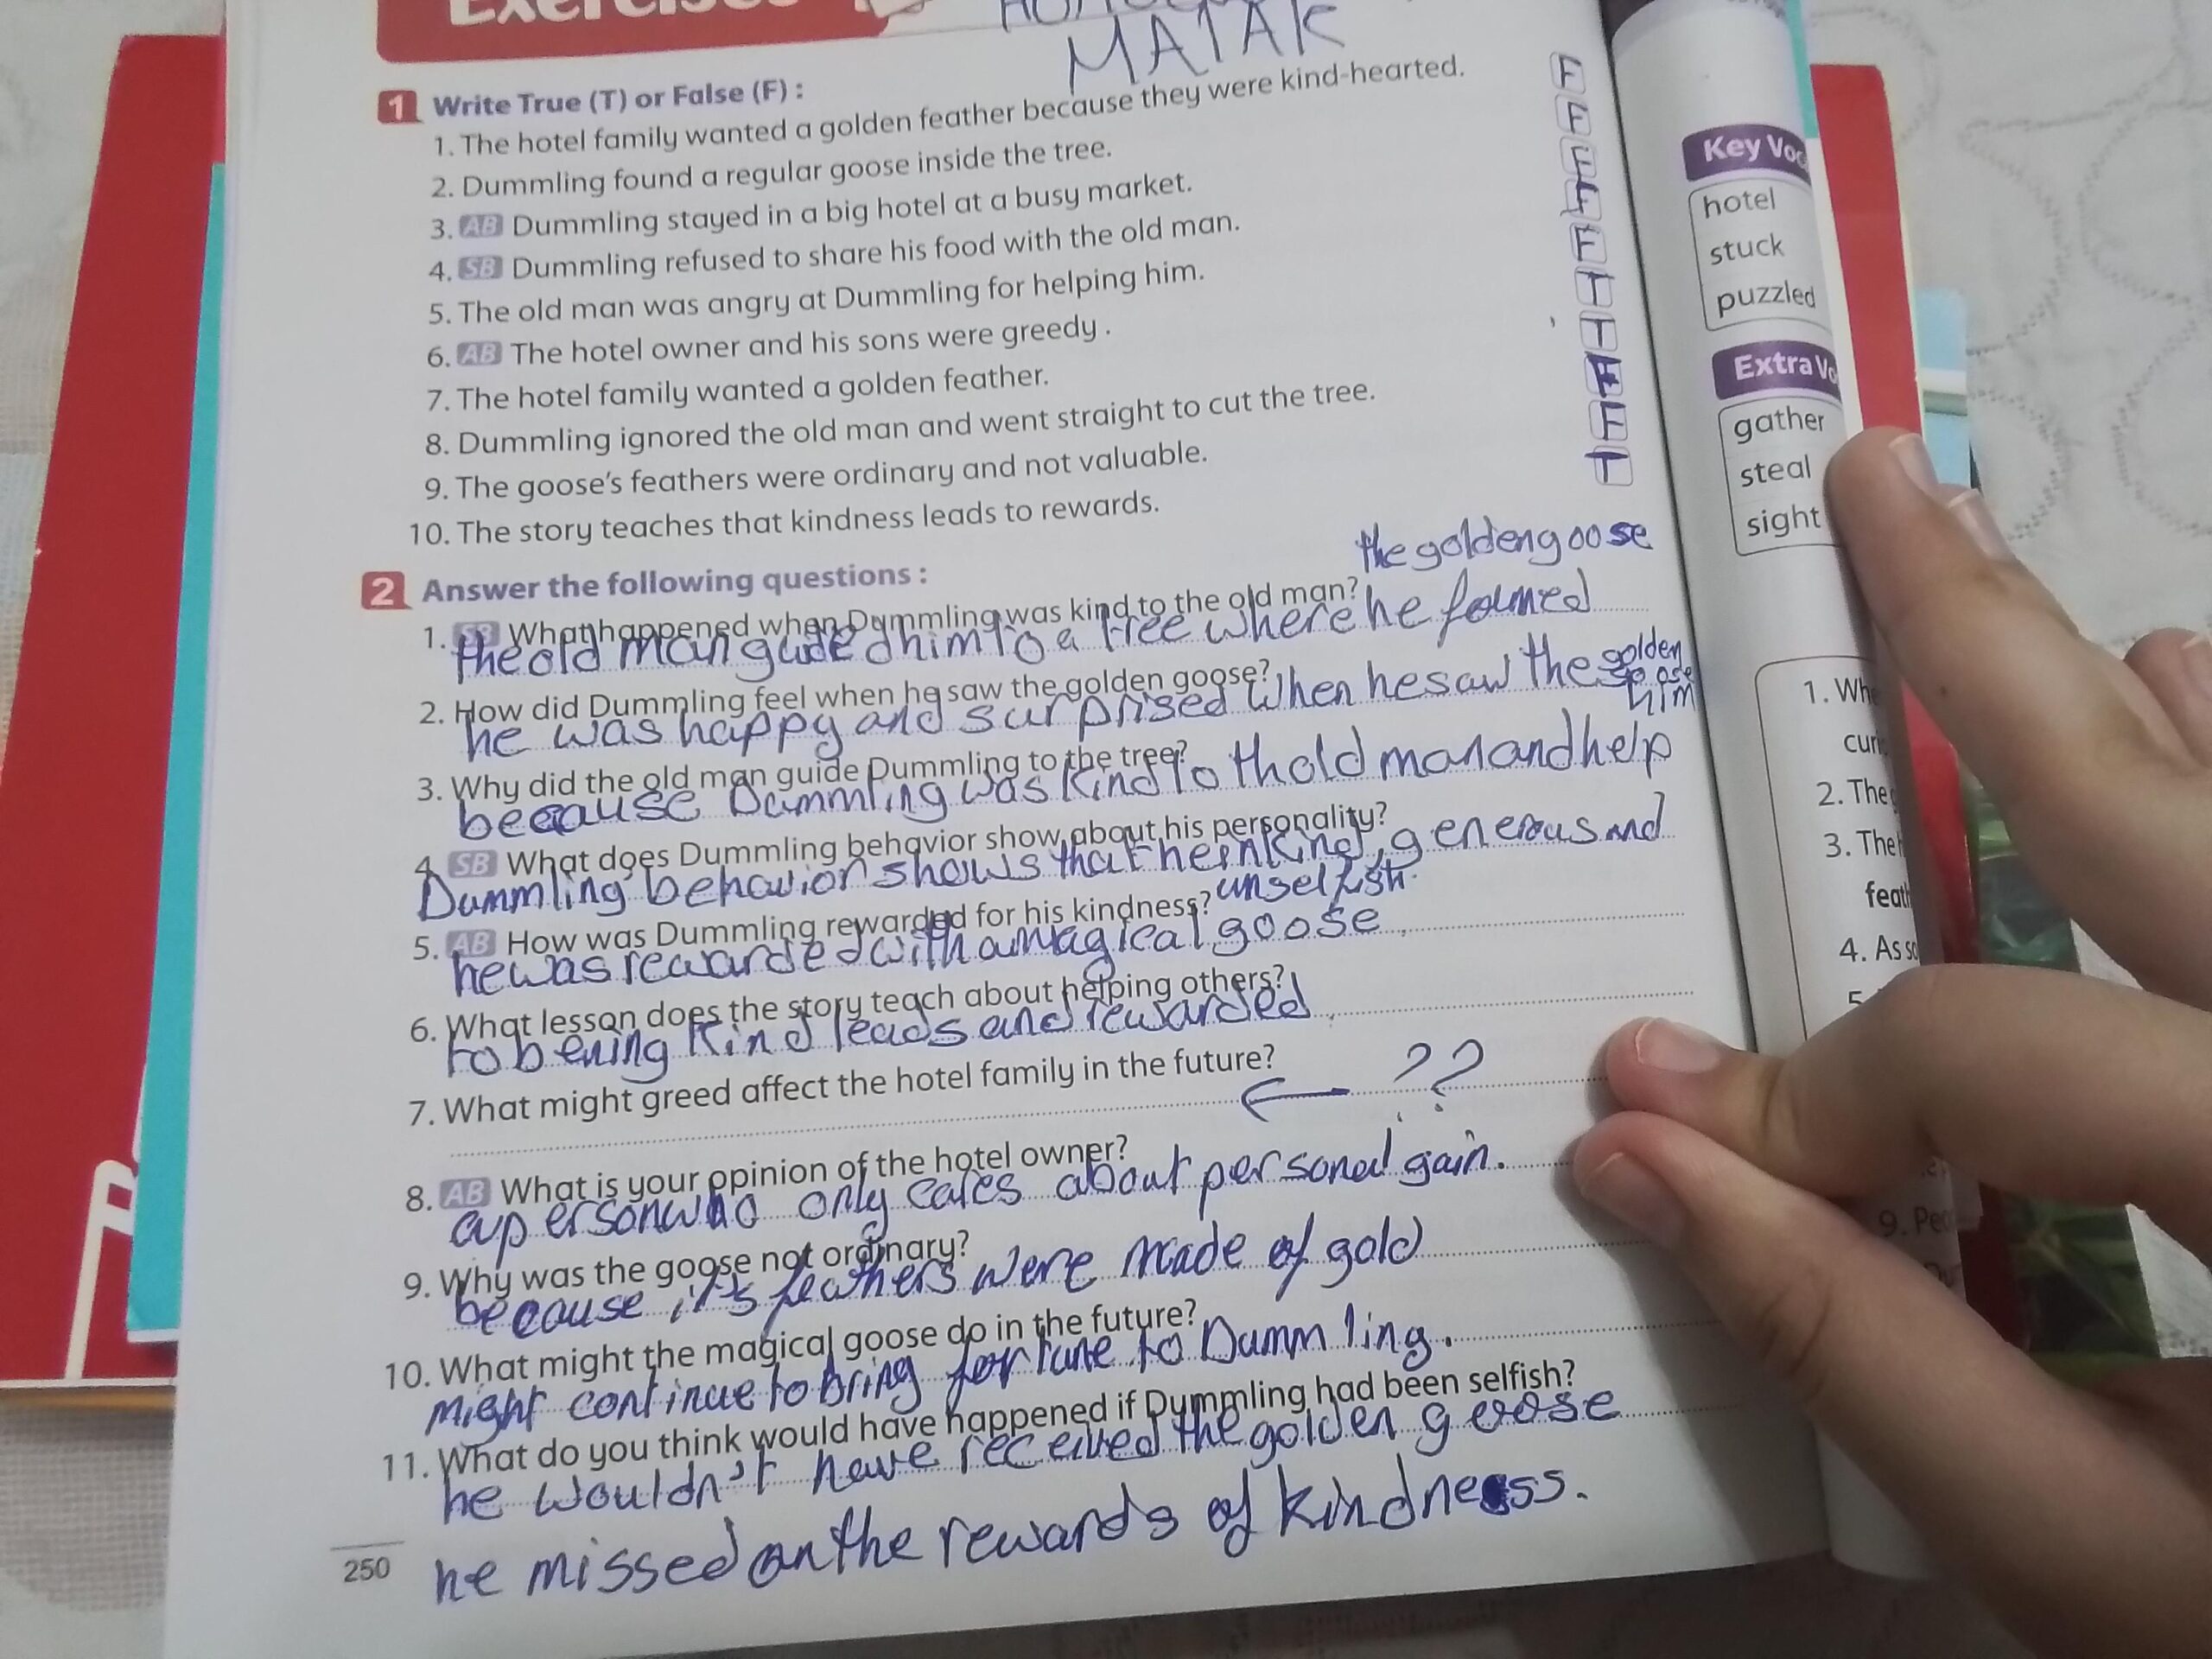 Exercises
MATAR
1 Write True (T) or False (F) :
1. The hotel family wanted a golden feather because they were kind-hearted. F
2. Dummling found a regular goose inside the tree. F
3. AB Dummling stayed in a big hotel at a busy market. F
4. SB Dummling refused to share his food with the old man. F
5. The old man was angry at Dummling for helping him. F
6. AB The hotel owner and his sons were greedy . T
7. The hotel family wanted a golden feather. T
8. Dummling ignored the old man and went straight to cut the tree. F
9. The goose's feathers were ordinary and not valuable. F
10. The story teaches that kindness leads to rewards. T
2 Answer the following questions :
the golden goose
1. SB What happened when Dummling was kind to the old man?
the old man guided him to a tree where he founed
2. How did Dummling feel when he saw the golden goose?
he was happy and surprised when he saw the golden goose
3. Why did the old man guide Dummling to the tree?
because Dummling was kind to thold man and help him
4. SB What does Dummling behavior show about his personality?
Dummling behavior shows that he kind, generous and
unselfish.
5. AB How was Dummling rewarded for his kindness?
he was rewarded with a magical goose
6. What lesson does the story teach about helping others?
to bening kind leads and rewarded
7. What might greed affect the hotel family in the future?
← ??
8. AB What is your opinion of the hotel owner?
a person who only cares about personal gain.
9. Why was the goose not ordinary?
because it's feathers were made of gold
10. What might the magical goose do in the future?
might continue to bring fortune to Dummling.
11. What do you think would have happened if Dummling had been selfish?
he wouldn't have received the golden goose
he missed on the rewards of kindness.
250
Key Voc
hotel
stuck
puzzled
Extra Vo
gather
steal
sight
1. Wh
curi
2. The
3. The
feath
4. As so
5.
9. Peo